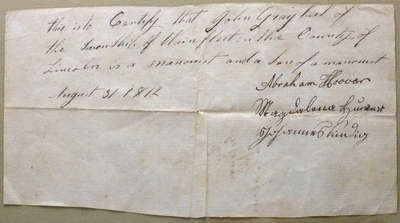 this is to Certify that John Grayhiel of
the Township of Clainfleet in the County of
Lincoln is a manonist and a son of a manonist
August 31 1812
Abraham Hoover
Magdalena
Johannes